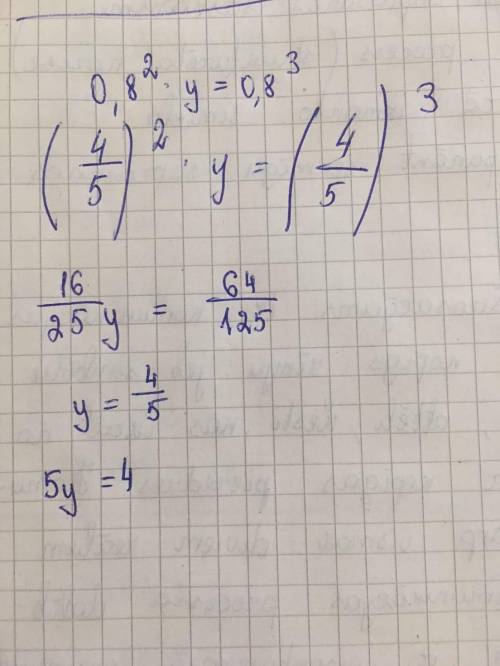 0,8² · y = 0,8³
(4/5)² · y = (4/5)³
16/25 y = 64/125
y = 4/5
5y = 4